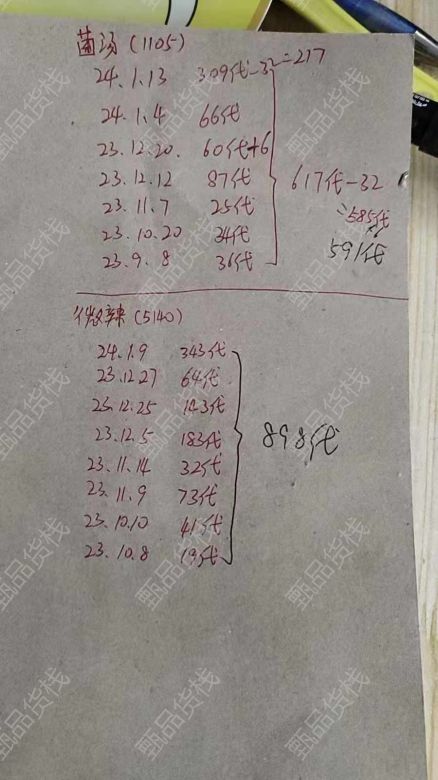 菌汤(1105)
24.1.13 309代-32=277
24.1.4 66代
23.12.20. 60代+6
23.12.12 87代
23.11.7 25代
23.10.20 34代
23.9.8 36代
617代-32
=585代
+6
591代
微辣(5140)
24.1.9 343代
23.12.27 64代
23.12.25 143代
23.12.5 183代
23.11.14 32代
23.11.9 73代
23.10.10 41代
23.10.8 19代
898代
甄品货栈